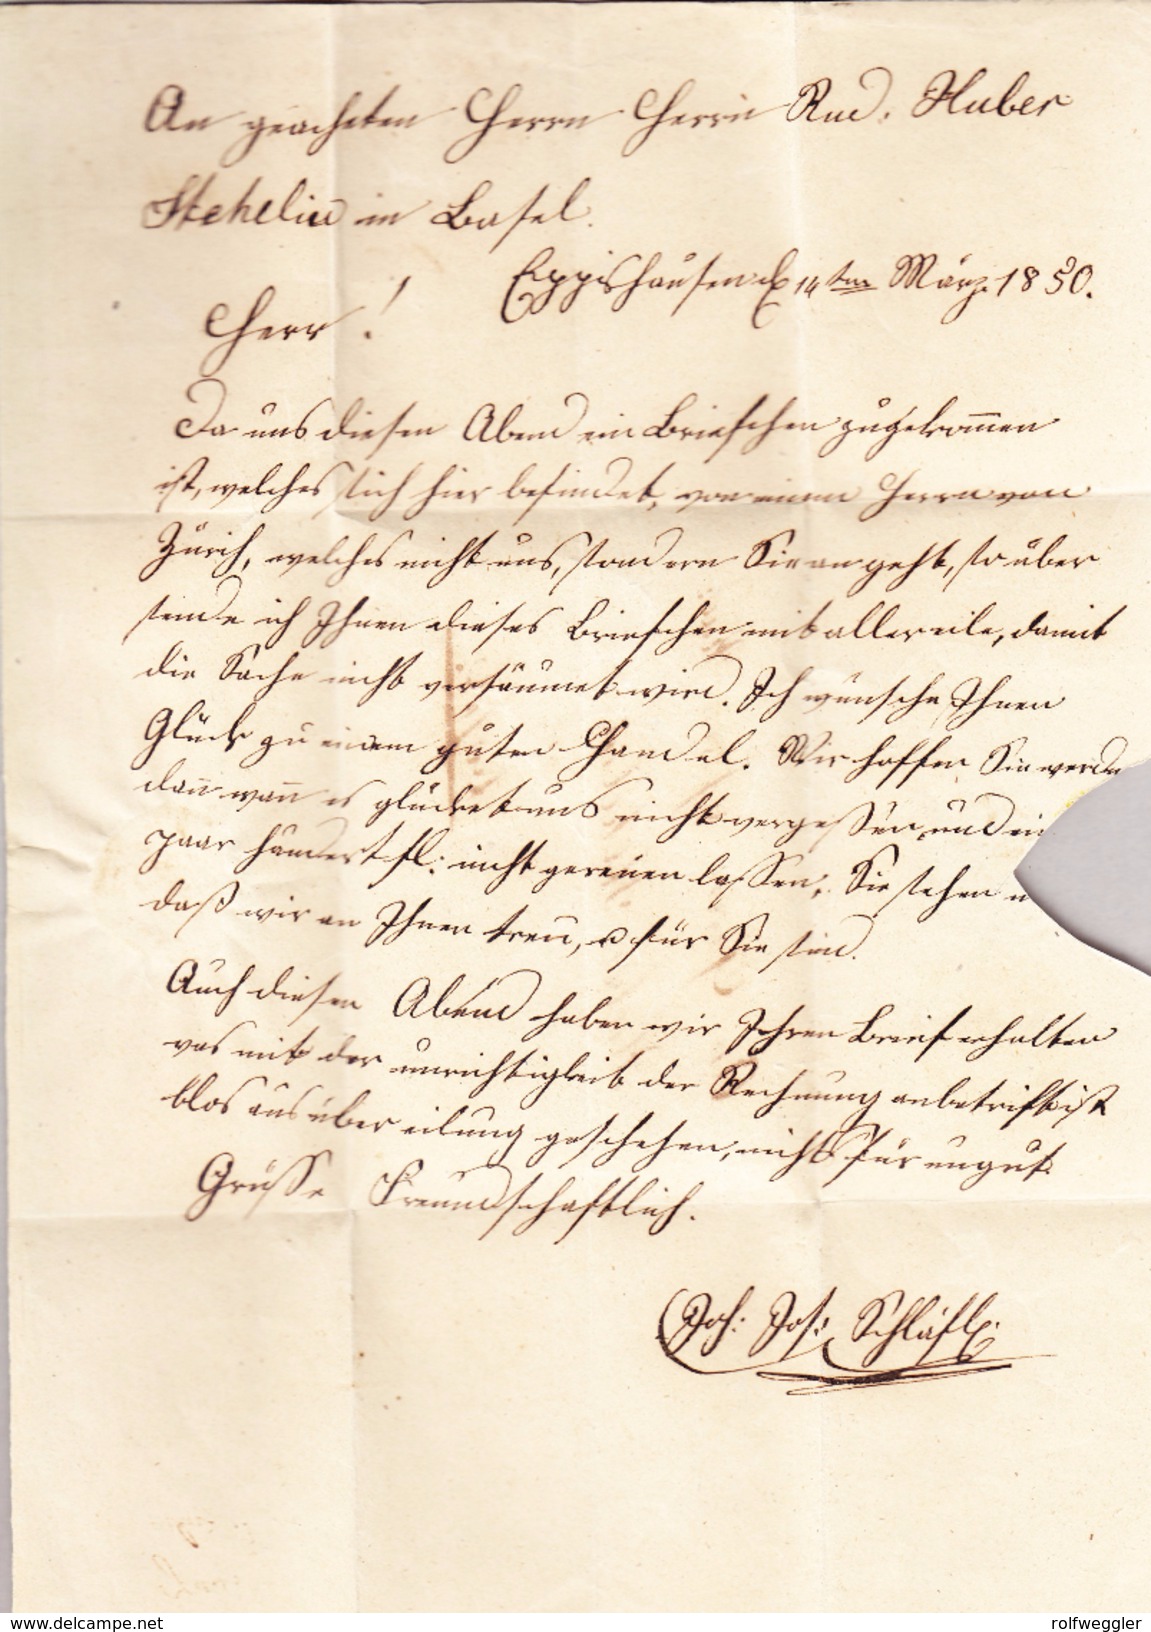 An geacheten Herrn Herrn Rud. Huber
Stehelin in Basel.
Eppishausen d 14ten März 1850.
Herr!
Da uns diesen Abend ein Briefchen zugekom̅en
ist, welches sich hier befindet, von einem Herrn von
Zürich, welches nicht uns, sondern Sie angeht, so über
sende ich Ihnen dieses Briefchen mit aller eile, damit
die Sache nicht versäumet wird. Ich wünsche Ihnen
Glück zu einem guten Handel. Wir hoffen Sie werden
dan̅ wan̅ es glücket uns nicht vergessen und ein
paar hundert fl: nicht gereüen lassen, Sie sehen
daß wir an Ihnen treu, u für Sie sind.
Auch diesen Abend haben wir Ihren Brief erhalten
was mit der unrichtigkeit der Rechnung anbetrift ist
blos aus über eilung geschehen, nichts für ungut.
Grüsse Freundschaftlich.
Joh: Jos: Schläfli.
delcampe.net
rolfweggler